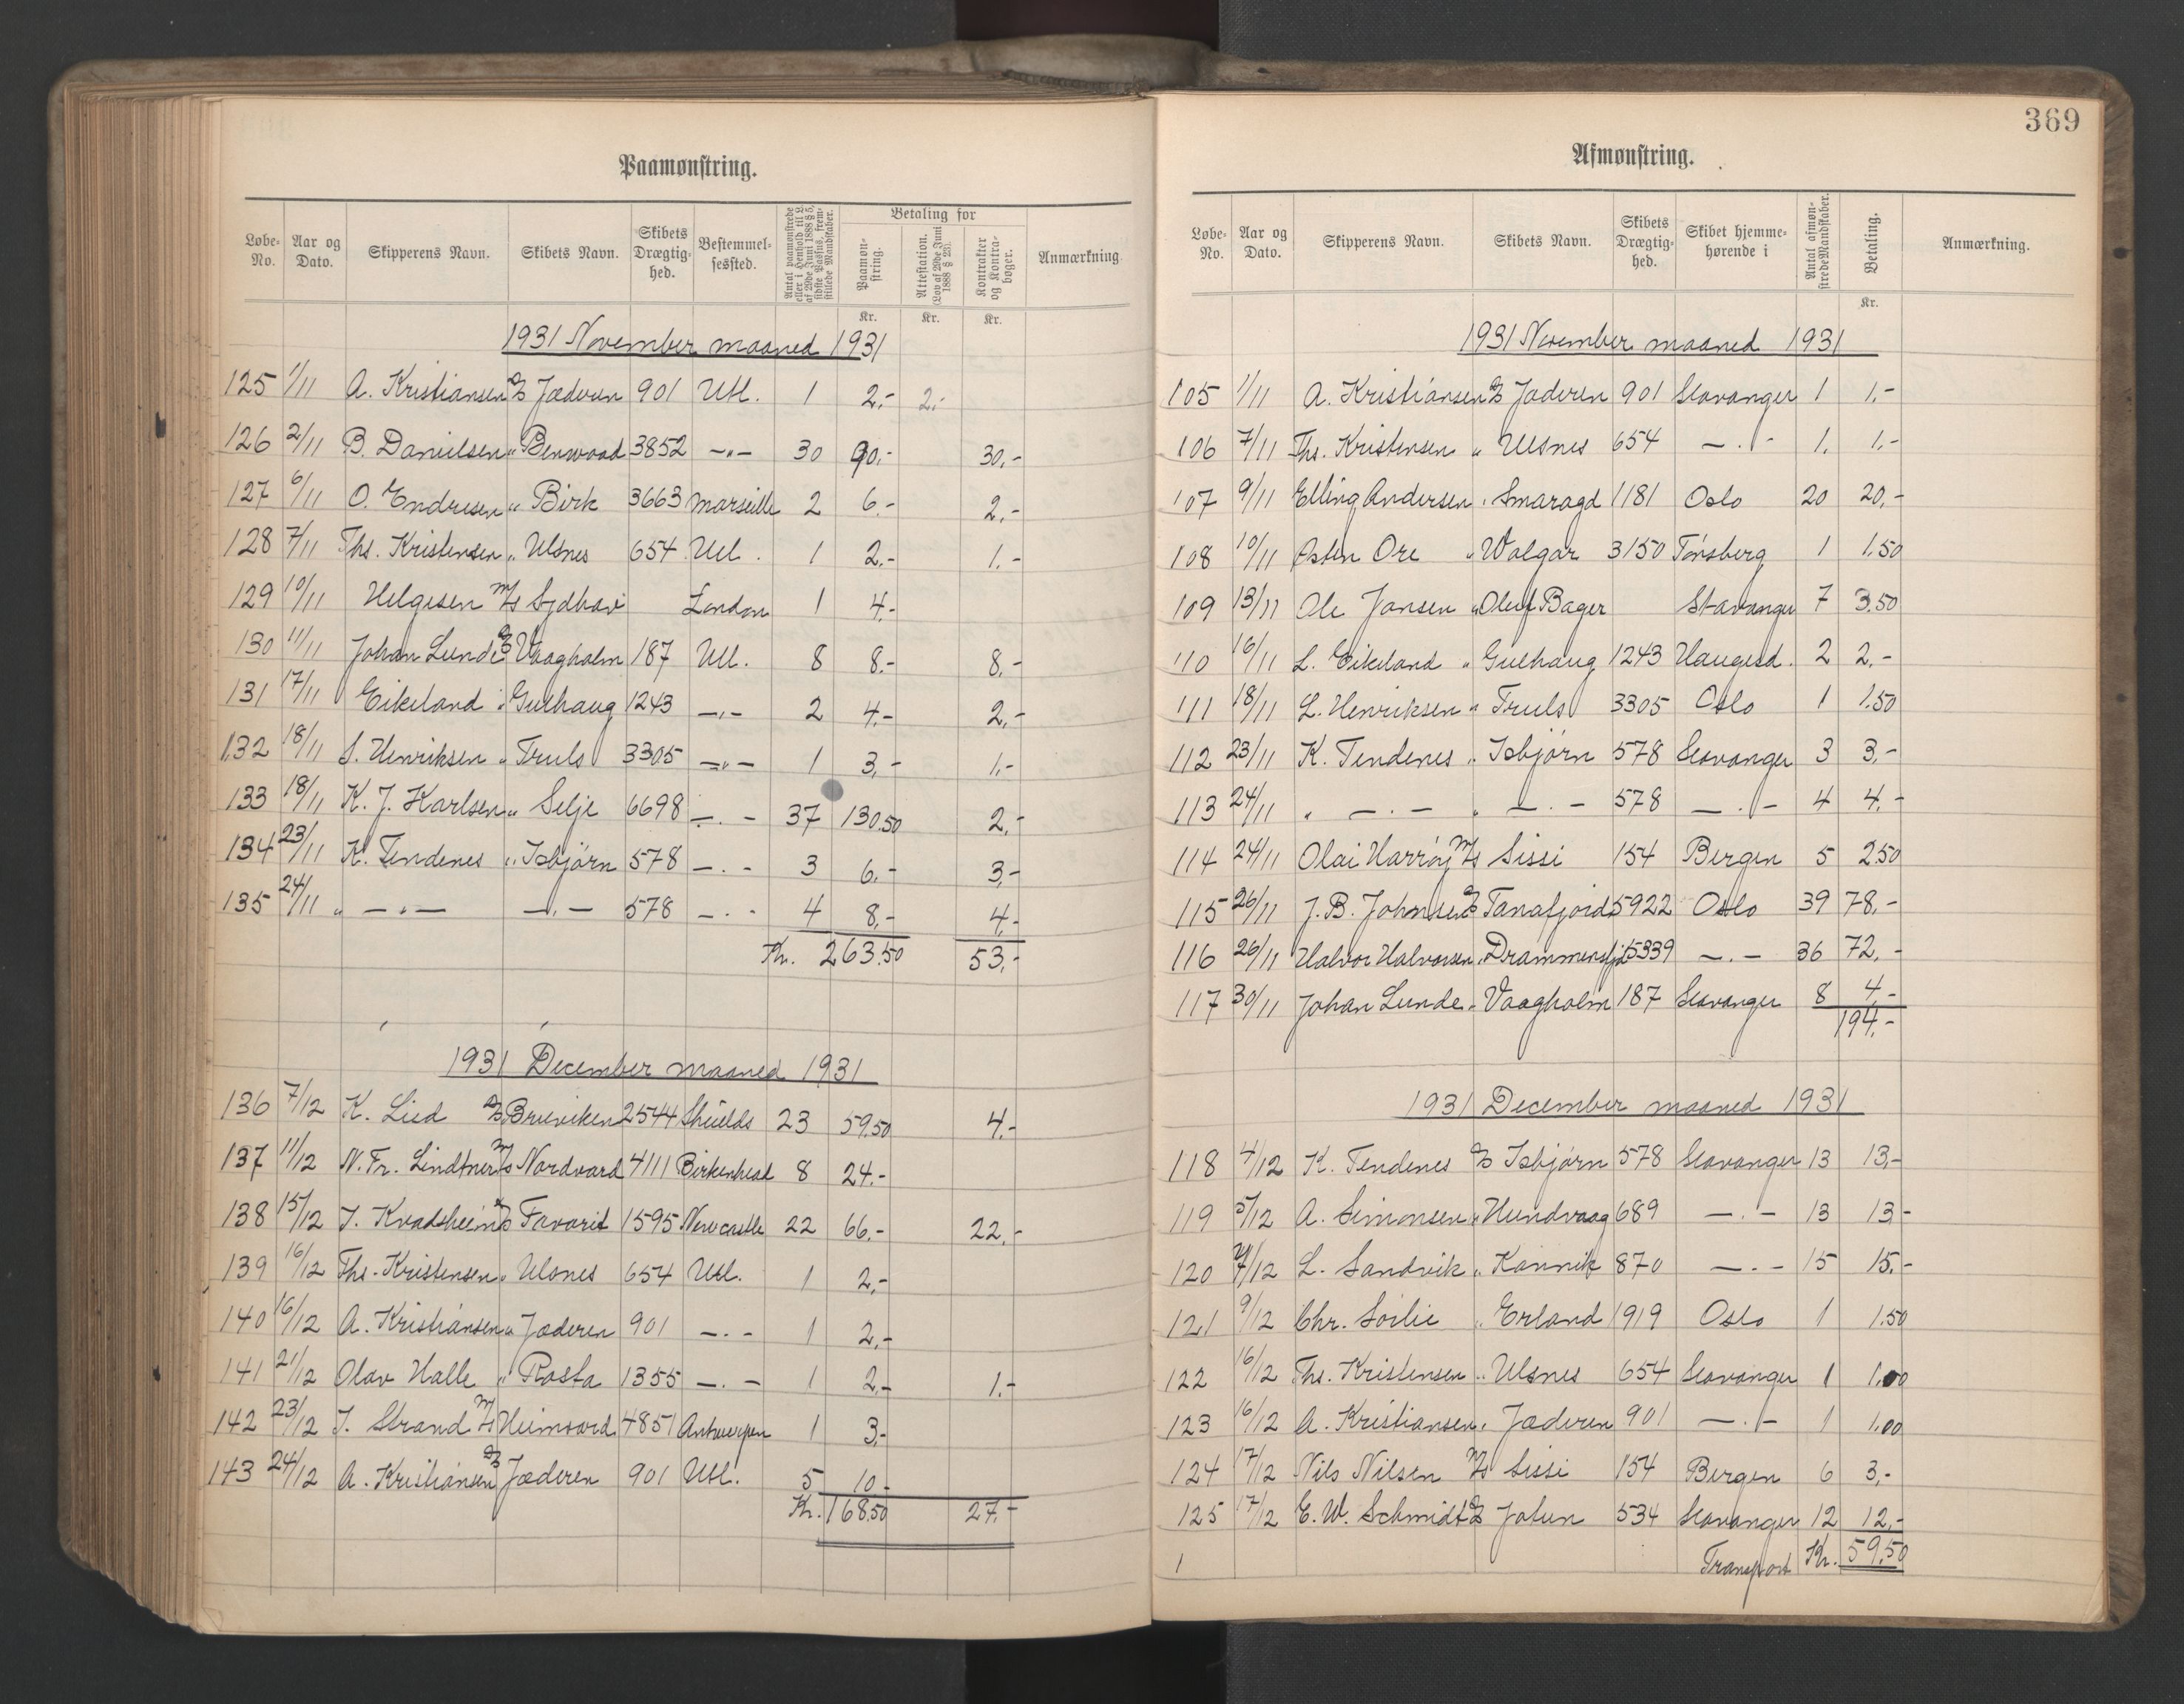 Paamønstring.
Løbe-No. Aar og Dato. Skipperens Navn. Skibets Navn. Skibets Drægtighed. Bestemmelsessted. Antal paamønstrede eller i Henhold til L. af 29de Juni 1888 § 5, sidste Passus, fremstillede Mandskaber. Betaling for Paamønstring. Attestation. (Lov af 29de Juni 1888 § 23). Kontrakter og Kontrabøger. Anmærkning.
Kr. Kr. Kr.
1931 November maaned 1931
125 1/11 A. Kristiansen D/S Jæderen 901 Utl. 1 2,- 2,-
126 2/11 B. Danielsen " Benwood 3852 -"- 30 90,- 30,-
127 6/11 O. Endresen " Birk 3663 Marseille 2 6.- 2,-
128 7/11 Ths. Kristensen " Ulsnes 654 Utl. 1 2.- 1.-
129 10/11 Helgesen M/S Sydhav London 1 4.-
130 11/11 Johan Lunde D/S Vaagholm 187 Utl. 8 8.- 8,-
131 17/11 Eikeland " Gulhaug 1243 -"- 2 4,- 2,-
132 18/11 S. Henriksen " Truls 3305 -"- 1 3,- 1,-
133 18/11 K. J. Karlsen " Selje 6698 -"- 37 130.50 2,-
134 23/11 K. Tendenes " Isbjørn 578 -"- 3 6.- 3,-
135 24/11 " -"- -"- 578 -"- 4 8,- 4,-
Kr. 263.50 53,-
1931 December maaned 1931
136 7/12 K. Lied D/S Breviken 2544 Shields 23 59.50 4.-
137 11/12 N. Fr. Lindtner M/S Nordvard 4111 Birkenhead 8 24.-
138 15/12 T. Kvadsheim D/S Favorit 1595 Newcastle 22 66.- 22,-
139 16/12 Ths. Kristensen " Ulsnes 654 Utl. 1 2,-
140 16/12 A. Kristiansen " Jæderen 901 -"- 1 2,-
141 21/12 Olav Halle " Rosta 1355 -"- 1 2,- 1.-
142 23/12 T. Strand M/S Heimvard 4851 Antwerpen 1 3,-
143 24/12 A. Kristiansen D/S Jæderen 901 Utl. 5 10.-
Kr. 168.50 27,-
369
Afmønstring.
Løbe-No. Aar og Dato. Skipperens Navn. Skibets Navn. Skibets Drægtighed. Skibet hjemmehørende i Antal afmønstrede Mandskaber. Betaling. Anmærkning.
Kr.
1931 November maaned 1931
105 1/11 A. Kristiansen D/S Jæderen 901 Stavanger 1 1.-
106 7/11 Ths. Kristensen " Ulsnes 654 -"- 1. 1.-
107 9/11 Elling Andersen " Smaragd 1181 Oslo 20 20,-
108 10/11 Østen Ore " Wolgar 3150 Tønsberg 1 1.50
109 13/11 Ole Jansen " Oluf Bager Stavanger 7 3.50
110 16/11 L. Eikeland " Gulhaug 1243 Haugesd. 2 2.-
111 18/11 L. Henriksen " Truls 3305 Oslo 1 1.50
112 23/11 K. Tendenes " Isbjørn 578 Stavanger 3 3,-
113 24/11 " -"- " -"- 578 -"- 4 4.-
114 24/11 Olai Harrøy M/S Sissi 154 Bergen 5 2.50
115 26/11 J. B. Johnsen D/S Tanafjord 5922 Oslo 39 78,-
116 26/11 Halvor Halvorsen " Drammensfjd 5339 -"- 36 72,-
117 30/11 Johan Lunde " Vaagholm 187 Stavanger 8 4,-
194,-
1931 December maaned 1931
118 4/12 K. Tendenes D/S Isbjørn 578 Stavanger 13 13,-
119 5/12 A. Simonsen " Hundvaag 689 -"- 13 13-
120 7/12 L. Sandvik " Kannik 870 -"- 15 15.-
121 9/12 Chr. Soilie " Erland 1919 Oslo 1 1.50
122 16/12 Ths. Kristensen " Ulsnes 654 Stavanger 1 1.00
123 16/12 A. Kristiansen " Jæderen 901 -"- 1 1.00
124 17/12 Nils Nilsen M/S Sissi 154 Bergen 6 3,-
125 17/12 E. W. Schmidt D/S Jotun 534 Stavanger 12 12,-
1 Transport Kr. 59,50